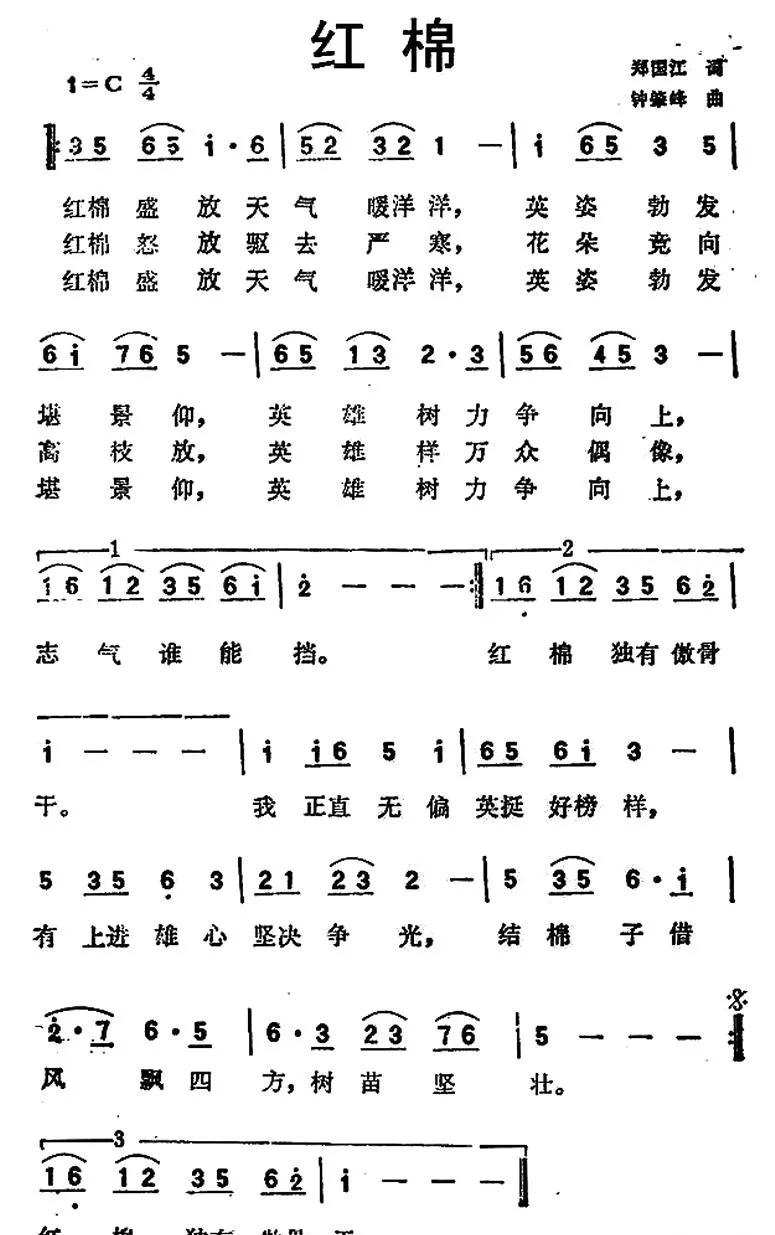 红棉
1=C 4/4
郑国江 词
钟肇峰 曲
3 5 6 5 i · 6 | 5 2 3 2 1 — | i 6 5 3 5 |
红棉 盛 放 天 气 暖洋 洋， 英 姿 勃 发
红棉 怒 放 驱 去 严 寒， 花 朵 竞 向
红棉 盛 放 天 气 暖洋 洋， 英 姿 勃 发
6 i 7 6 5 — | 6 5 1 3 2 · 3 | 5 6 4 5 3 — |
堪 景 仰， 英 雄 树 力 争 向 上，
离 枝 放， 英 雄 样 万 众 偶 像，
堪 景 仰， 英 雄 树 力 争 向 上，
1 2
1 6 1 2 3 5 6 i | 2 — — — :| 1 6 1 2 3 5 6 2 |
志 气 谁 能 挡。 红 棉 独有 傲骨
i — — — | i i 6 5 i | 6 5 6 i 3 — |
干。 我 正直 无 偏 英挺 好榜 样，
5 3 5 6 3 | 2 1 2 3 2 — | 5 3 5 6 · i |
有 上进 雄 心 坚决 争 光， 结 棉 子 借
2 · 7 6 · 5 | 6 · 3 2 3 7 6 | 5 — — — :|
风 飘 四 方，树 苗 坚 壮。
3
1 6 1 2 3 5 6 2 | i — — — |